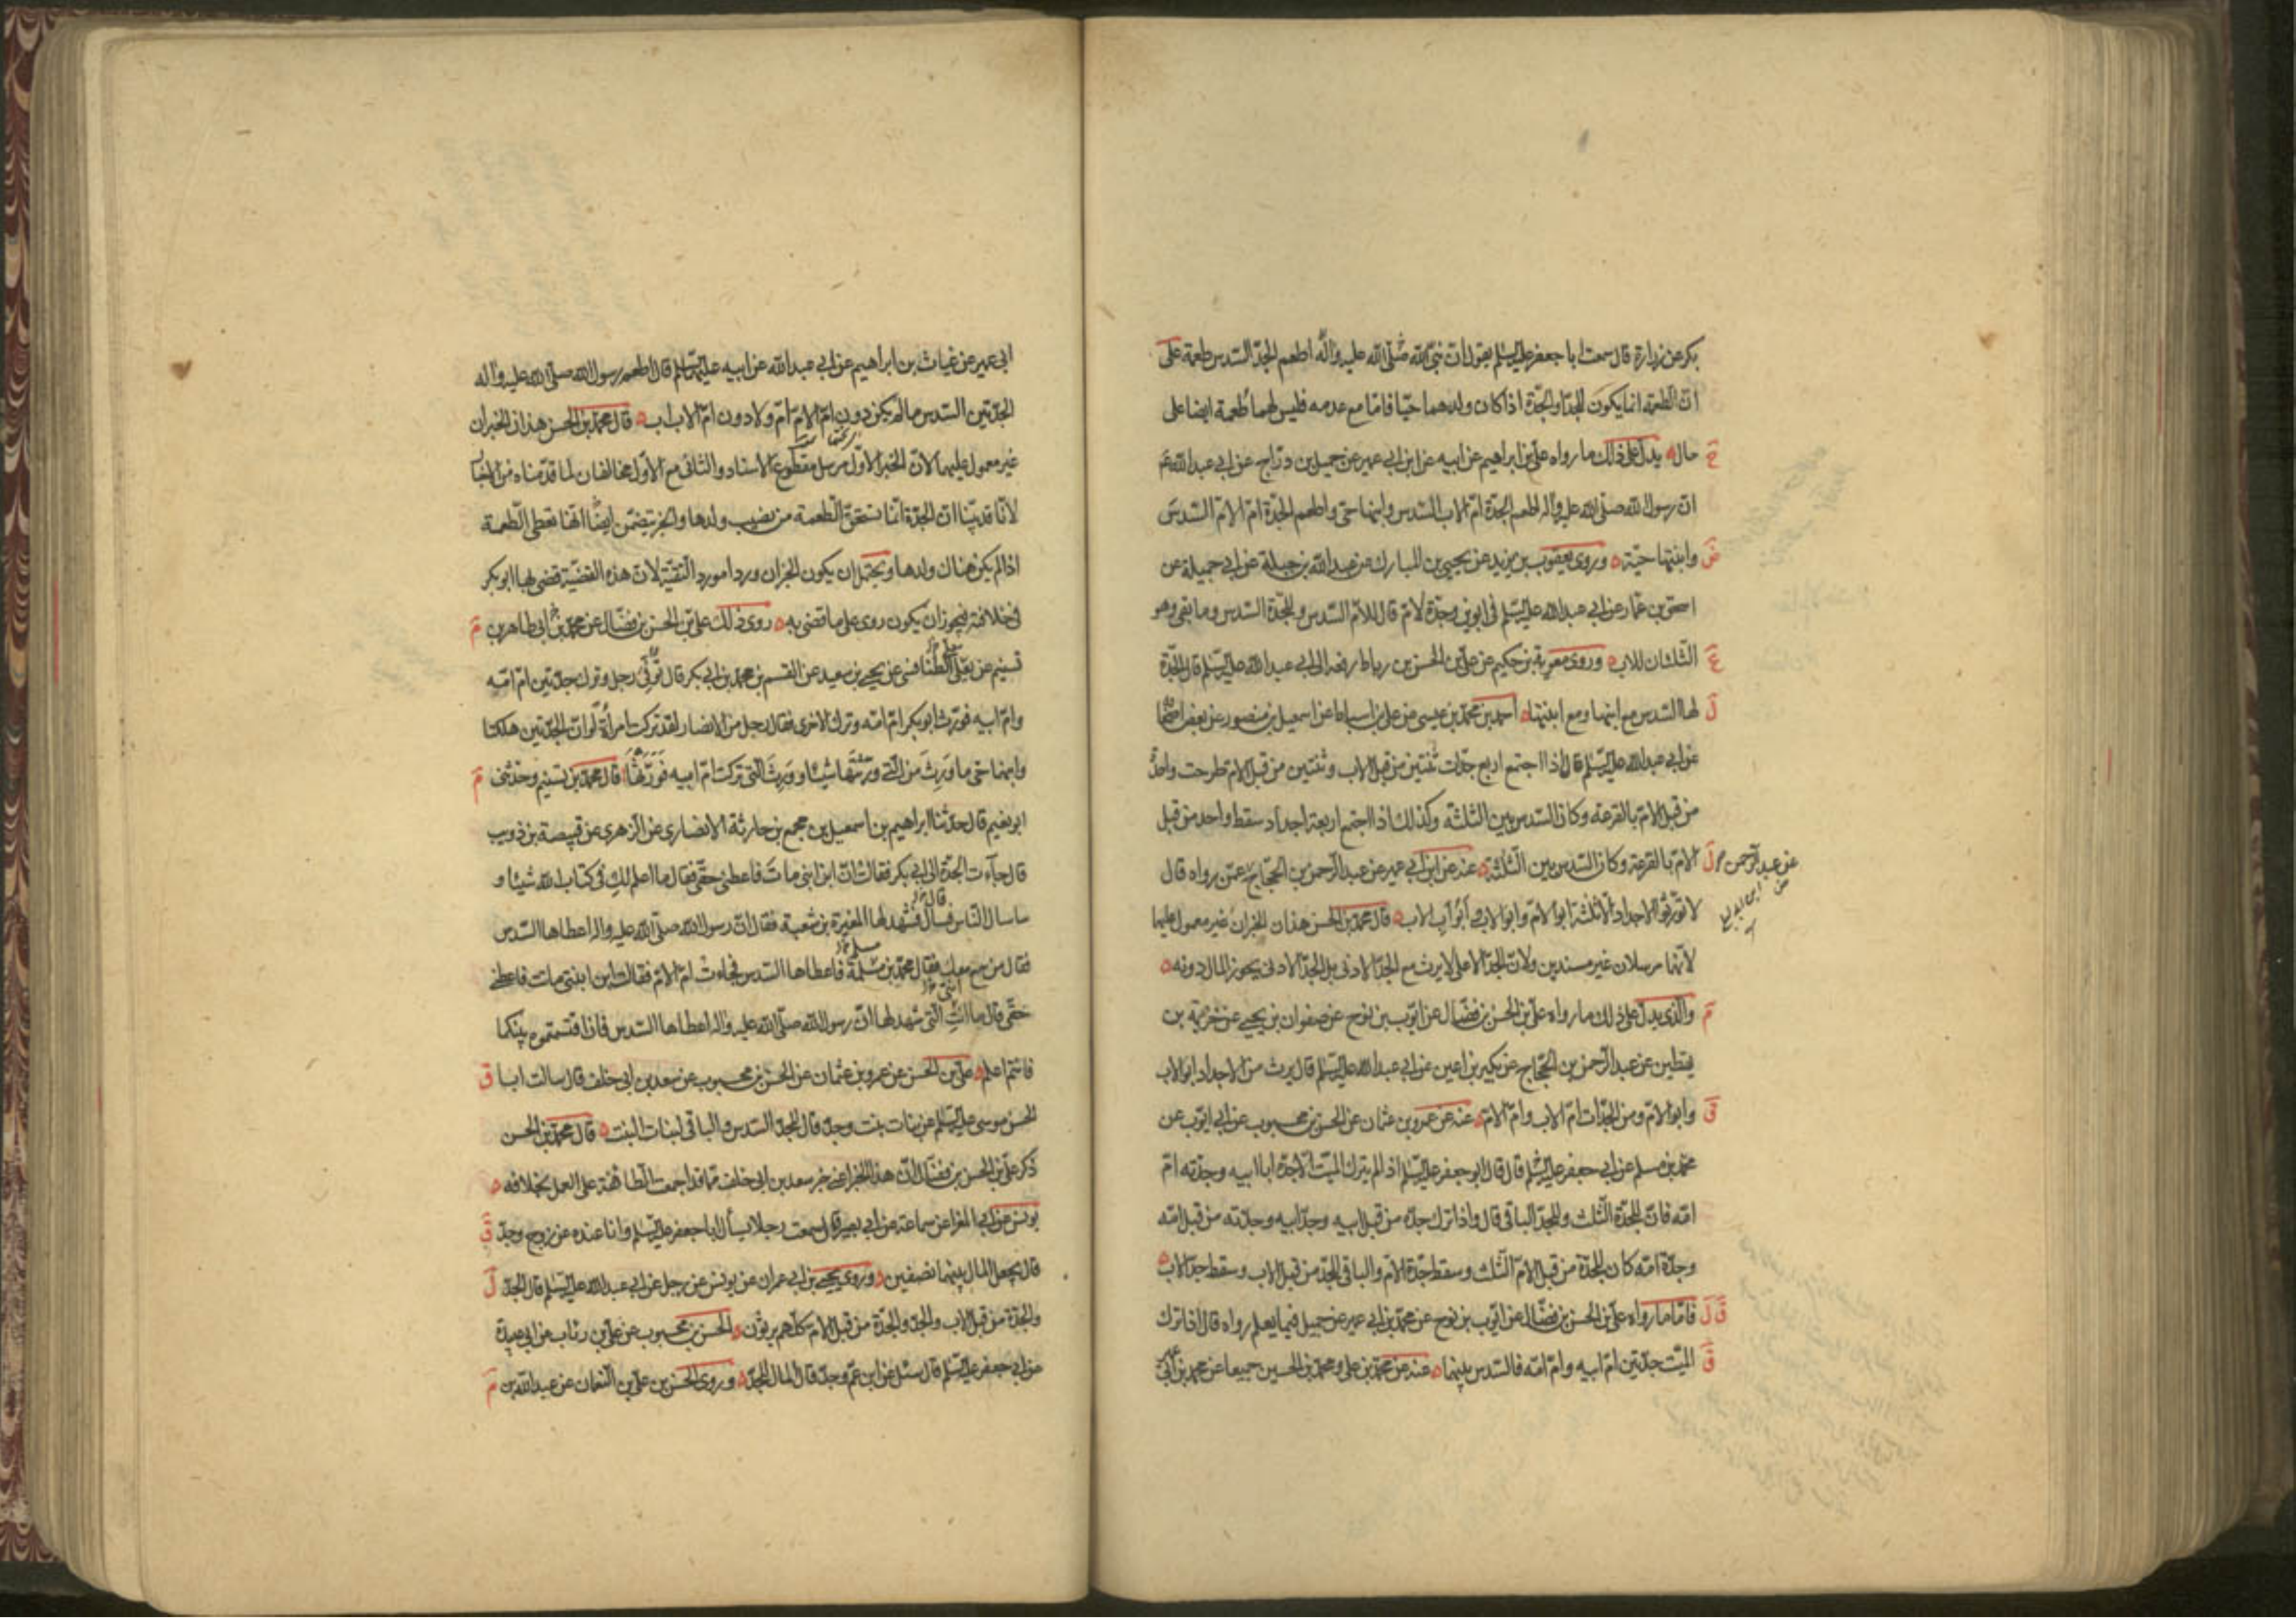 بكر عن زرارة قال سمعت ابا جعفر عليه السلم يقول ان نبي الله صلى الله عليه واله اطعم الجد السدس طعمة على
ان الطعمة انما يكون للجد او الجدة اذا كان ولدهما حيا فاما مع عدمه فليس لهما طعمة ايضا على
حال يدل على ذلك ما رواه علي بن ابراهيم عن ابيه عن ابن ابي عمير عن جميل بن دراج عن ابي عبد الله ع
ان رسول الله صلى الله عليه واله اطعم الجدة ام الاب السدس وابنها حي واطعم الجدة ام الام السدس
وابنتها حية وروى يعقوب بن يزيد عن يحيى بن المبارك عن عبد الله بن جبلة عن ابي جميلة عن
اسحق بن عمار عن ابي عبد الله عليه السلم في ابوين وجدة لام قال للام السدس وللجدة السدس وما بقي وهو
الثلثان للاب وروى معوية بن حكيم عن علي بن الحسن بن رباط رفعه الى ابي عبد الله عليه السلم قال الجدة
لها السدس مع ابنها ومع ابنتها احمد بن محمد بن عيسى عن علي بن اسباط عن اسمعيل بن منصور عن بعض اصحابنا
عن ابي عبد الله عليه السلم قال اذا اجتمع اربع جدات ثنتين من قبل الاب وثنتين من قبل الام طرحت واحدة
من قبل الام بالقرعة وكان السدس بين الثلثة وكذلك اذا اجتمع اربعة اجداد سقط واحد من قبل
الام بالقرعة وكان السدس بين الثلثة عنه عن ابن ابي عمير عن عبد الرحمن بن الحجاج عمن رواه قال
عن عبد الرحمن
لا تورثوا الاجداد الا ثلثة ابو الام وابو الاب وابو اب الاب قال محمد بن الحسن هذان الخبران غير معمول عليهما
لانهما مرسلان غير مسندين ولان الجد الاعلى لا يرث مع الجد الادنى بل الجد الادنى يحوز المال دونه
والذي يدل على ذلك ما رواه علي بن الحسن بن فضال عن ايوب بن نوح عن صفوان بن يحيى عن خزيمة بن
يقطين عن عبد الرحمن بن الحجاج عن بكير بن اعين عن ابي عبد الله عليه السلم قال يرث من الاجداد ابو الاب
وابو الام ومن الجدات ام الاب وام الام عنه عن عمرو بن عثمان عن الحسن بن محبوب عن ابي ايوب عن
محمد بن مسلم عن ابي جعفر عليه السلم قال قال ابو جعفر عليه السلم اذا لم يترك الميت الا جده ابا ابيه وجدته ام
امه فان للجدة الثلث وللجد الباقي قال واذا ترك جده من قبل ابيه وجد ابيه وجدته من قبل امه
وجدة امه كان للجدة من قبل الام الثلث وسقط جدة الام والباقي للجد من قبل الاب وسقط جد الاب
فاما ما رواه علي بن الحسن بن فضال عن ايوب بن نوح عن محمد بن ابي عمير عن جميل فيما يعلم رواه قال اذا ترك
الميت جدتين ام ابيه وام امه فالسدس بينهما عنه عن محمد بن علي ومحمد بن الحسين جميعا عن محمد بن ابي
ابي عمير عن غياث بن ابراهيم عن ابي عبد الله عن ابيه عليهما السلم قال اطعم رسول الله صلى الله عليه واله
الجدتين السدس ما لم يكن دون ام الام ام ولا دون ام الاب اب قال محمد بن الحسن هذان الخبران
غير معمول عليهما لان الخبر الاول مرسل مقطوع الاسناد والثاني مع الاول مخالفان لما قدمناه من الاخبار
لانا قد بينا ان الجدة انما تستحق الطعمة من نصيب ولدها والخبر يتضمن ايضا انها تعطى الطعمة
اذا لم يكن هناك ولدها ويحتمل ان يكون الخبران وردا مورد التقية لان هذه القضية قضى بها ابو بكر
في خلافته فيجوز ان يكون روى على ما قضى به روى ذلك علي بن الحسن بن فضال عن محمد بن ابي طاهر بن
تسنيم عن يعلى الطنافسي عن يحيى بن سعيد عن القسم بن محمد بن ابي بكر قال توفي رجل وترك جدتين ام امه
وام ابيه فورث ابو بكر ام امه وترك الاخرى فقال رجل من الانصار لقد تركت امرأة لو ان الجدتين هلكتا
وابنهما حي ما ورث من التي ورثتها شيئا وورث التي تركت ام ابيه فورثها قال محمد بن تسنيم وحدثني
ابو نعيم قال حدثنا ابراهيم بن اسمعيل بن مجمع بن حارثة الانصاري عن الزهري عن قبيصة بن ذويب
قال جاءت الجدة الى ابي بكر فقالت ان ابن ابني مات فاعطني حقي فقال ما اعلم لك في كتاب الله شيئا و
ساسال الناس فسال فشهد لها المغيرة بن شعبة فقال ان رسول الله صلى الله عليه واله اعطاها السدس
فقال من سمع معك فقال محمد بن مسلمة فاعطاها السدس فجاءت ام الام فقالت ابن ابنتي مات فاعطني
حقي قال ما انت التي شهد لها ان رسول الله صلى الله عليه واله اعطاها السدس فان اقتسمتموه بينكما
فانتم اعلم علي بن الحسن عن عمرو بن عثمان عن الحسن بن محبوب عن سعد بن ابي خلف قال سالت ابا
الحسن موسى عليه السلم عن بنات بنت وجد قال للجد السدس والباقي لبنات البنت قال محمد بن الحسن
ذكر علي بن الحسن بن فضال ان هذا الخبر اعني خبر سعد بن ابي خلف مما قد اجمعت الطائفة على العمل بخلافه
يونس عن ابي المغرا عن سماعة عن ابي بصير قال سمعت رجلا يسأل ابا جعفر عليه السلم وانا عنده عن زوج وجد
قال يجعل المال بينهما نصفين وروى يحيى بن ابي عمران عن يونس عن رجل عن ابي عبد الله عليه السلم قال الجد
والجدة من قبل الاب والجد والجدة من قبل الام كلهم يرثون الحسن بن محبوب عن علي بن رئاب عن ابي عبيدة
عن ابي جعفر عليه السلم قال سئل عن ابن عم وجد قال المال للجد وروى الحسن بن علي بن النعمان عن عبد الله بن